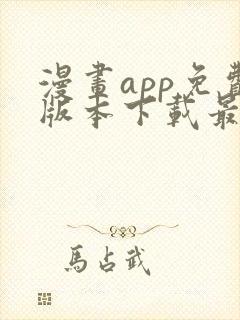 漫畫app免費
版本下載最
馬占武